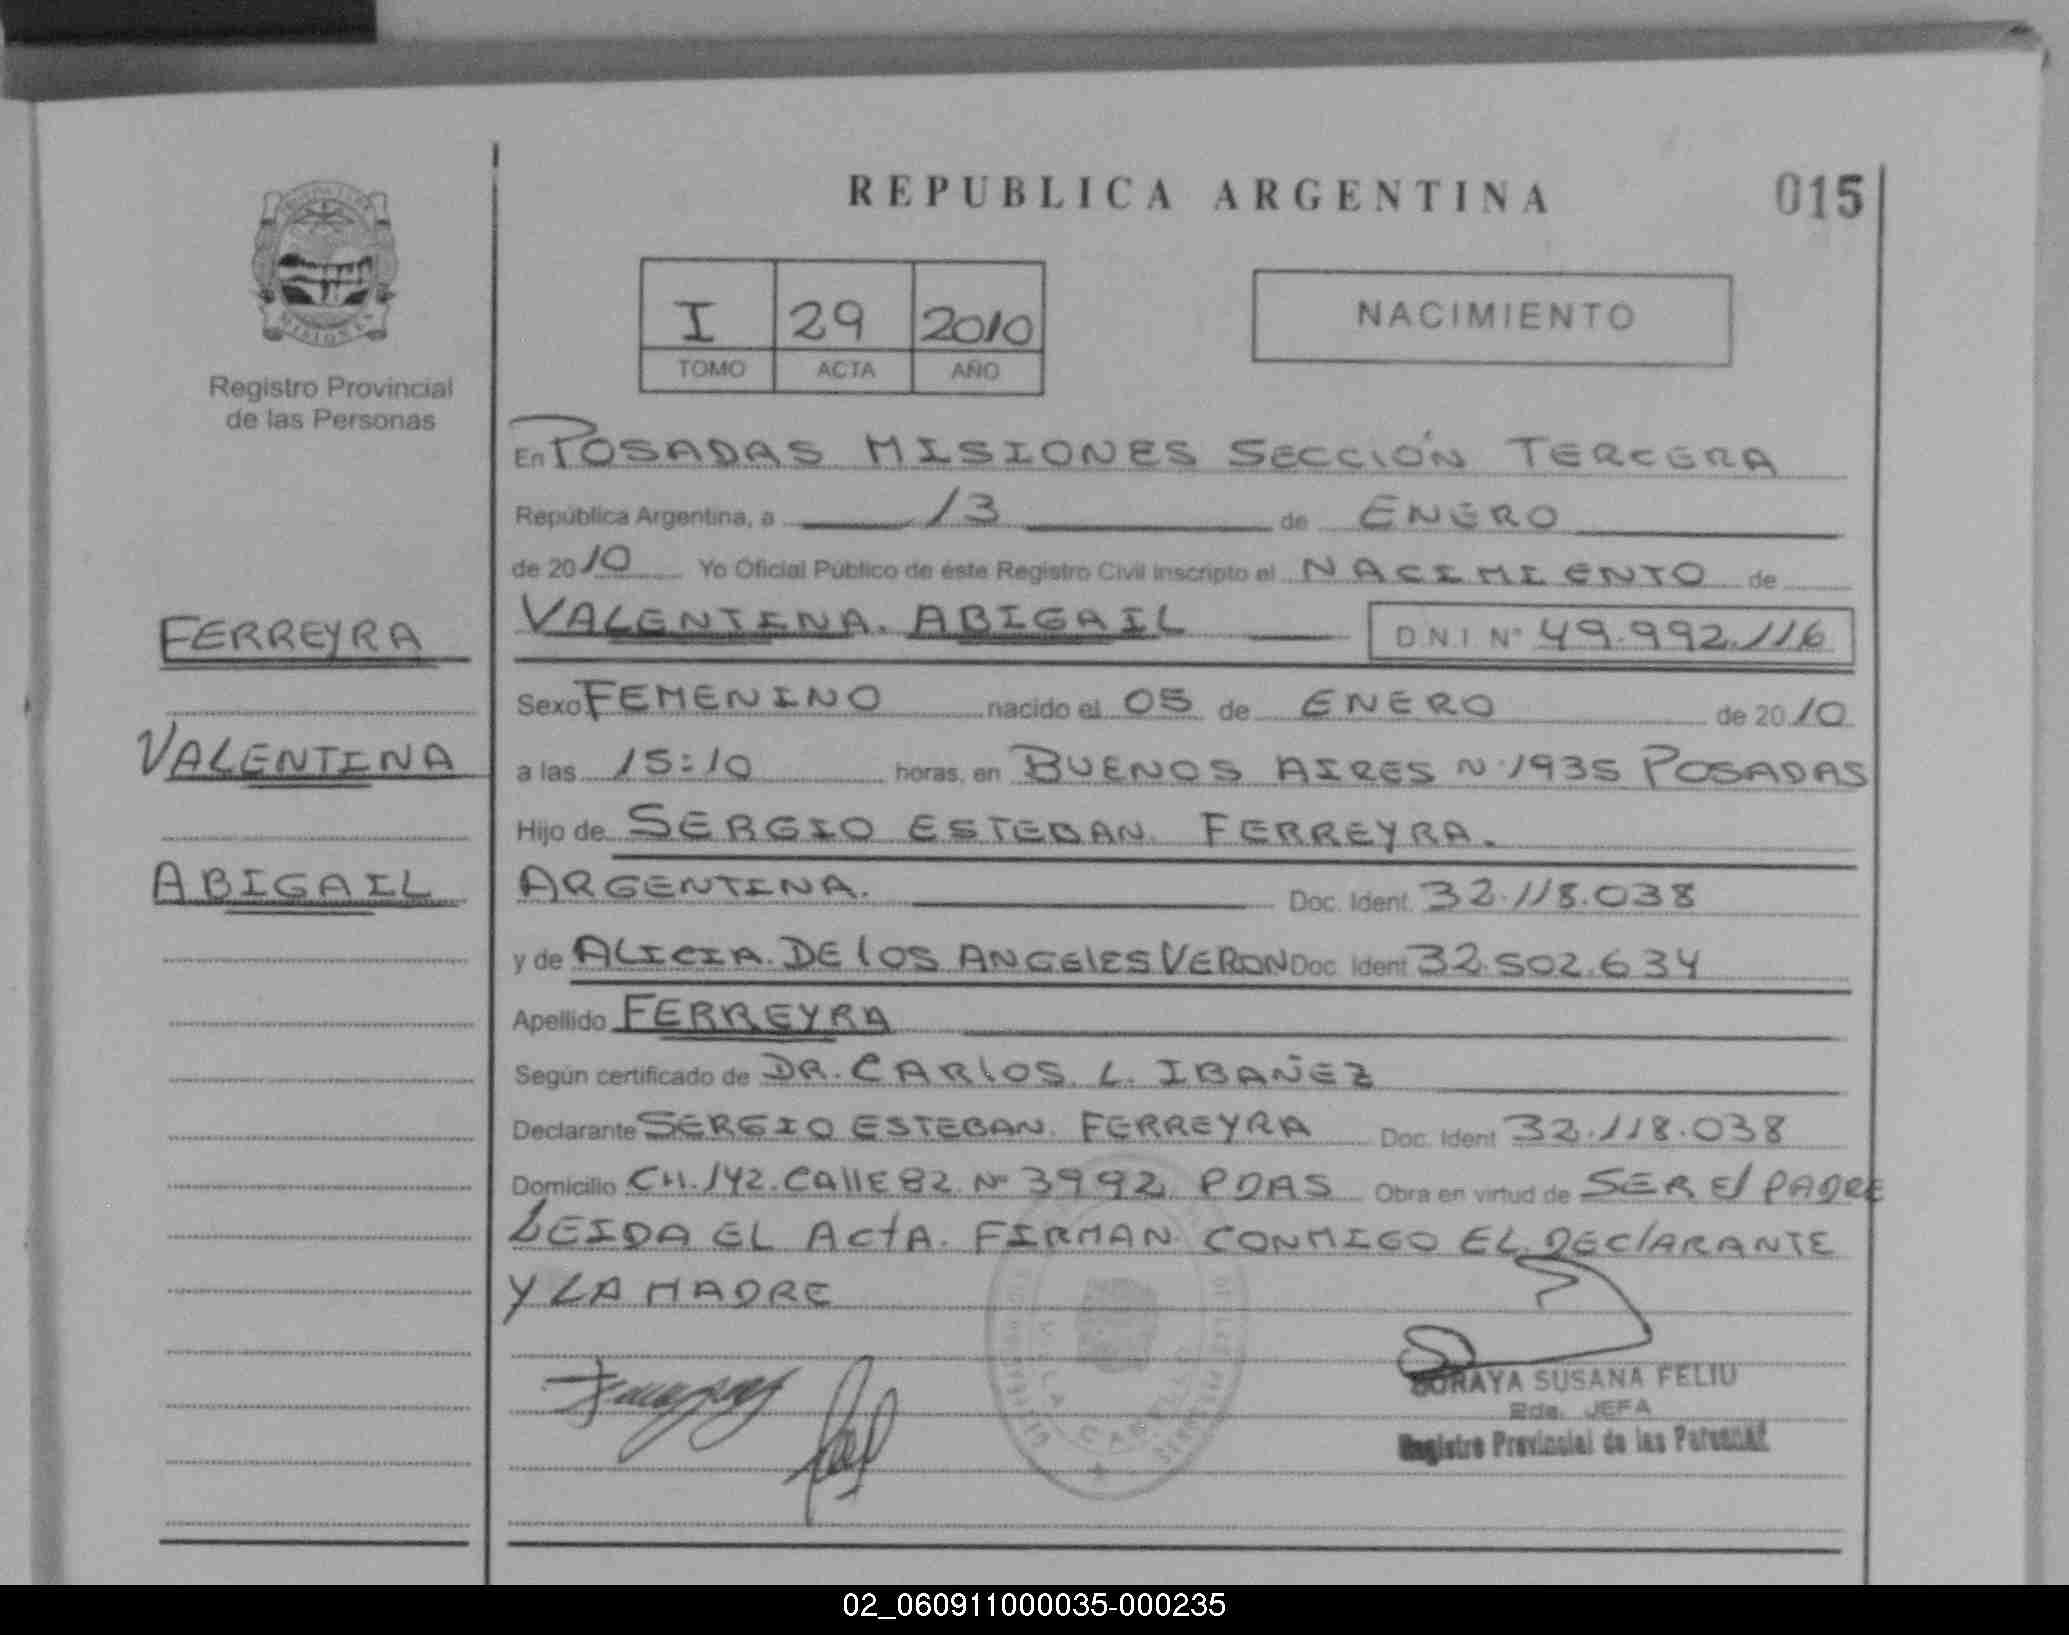 REPUBLICA ARGENTINA
015
I 29 2010
TOMO ACTA AÑO
NACIMIENTO
Registro Provincial
de las Personas
En POSADAS MISIONES SECCIÓN TERCERA
República Argentina, a 13 de ENERO
de 2010 Yo Oficial Público de éste Registro Civil inscripto el NACIMIENTO de
VALENTINA. ABIGAIL D.N.I. N° 49.992.116
FERREYRA
VALENTINA
ABIGAIL
Sexo FEMENINO nacido el 05 de ENERO de 2010
a las 15:10 horas, en BUENOS AIRES N·1935 POSADAS
Hijo de SERGIO ESTEBAN FERREYRA.
ARGENTINA. Doc. Ident. 32.118.038
y de ALICIA. DE lOS ANGElES VERON Doc. Ident 32.502.634
Apellido FERREYRA
Según certificado de DR. CARlOS. L. IBAÑEZ
Declarante SERGIO ESTEBAN. FERREYRA Doc. Ident 32.118.038
Domicilio CH.142.CAllE 82 N° 3992 PDAS Obra en virtud de SER El PADRE
LEIDA EL ActA. FIRMAN CONMIGO EL DEClARANTE
Y LA MADRE
VILLA CABELLO
SORAYA SUSANA FELIU
2da. JEFA
Registro Provincial de las Personas
02_060911000035-000235